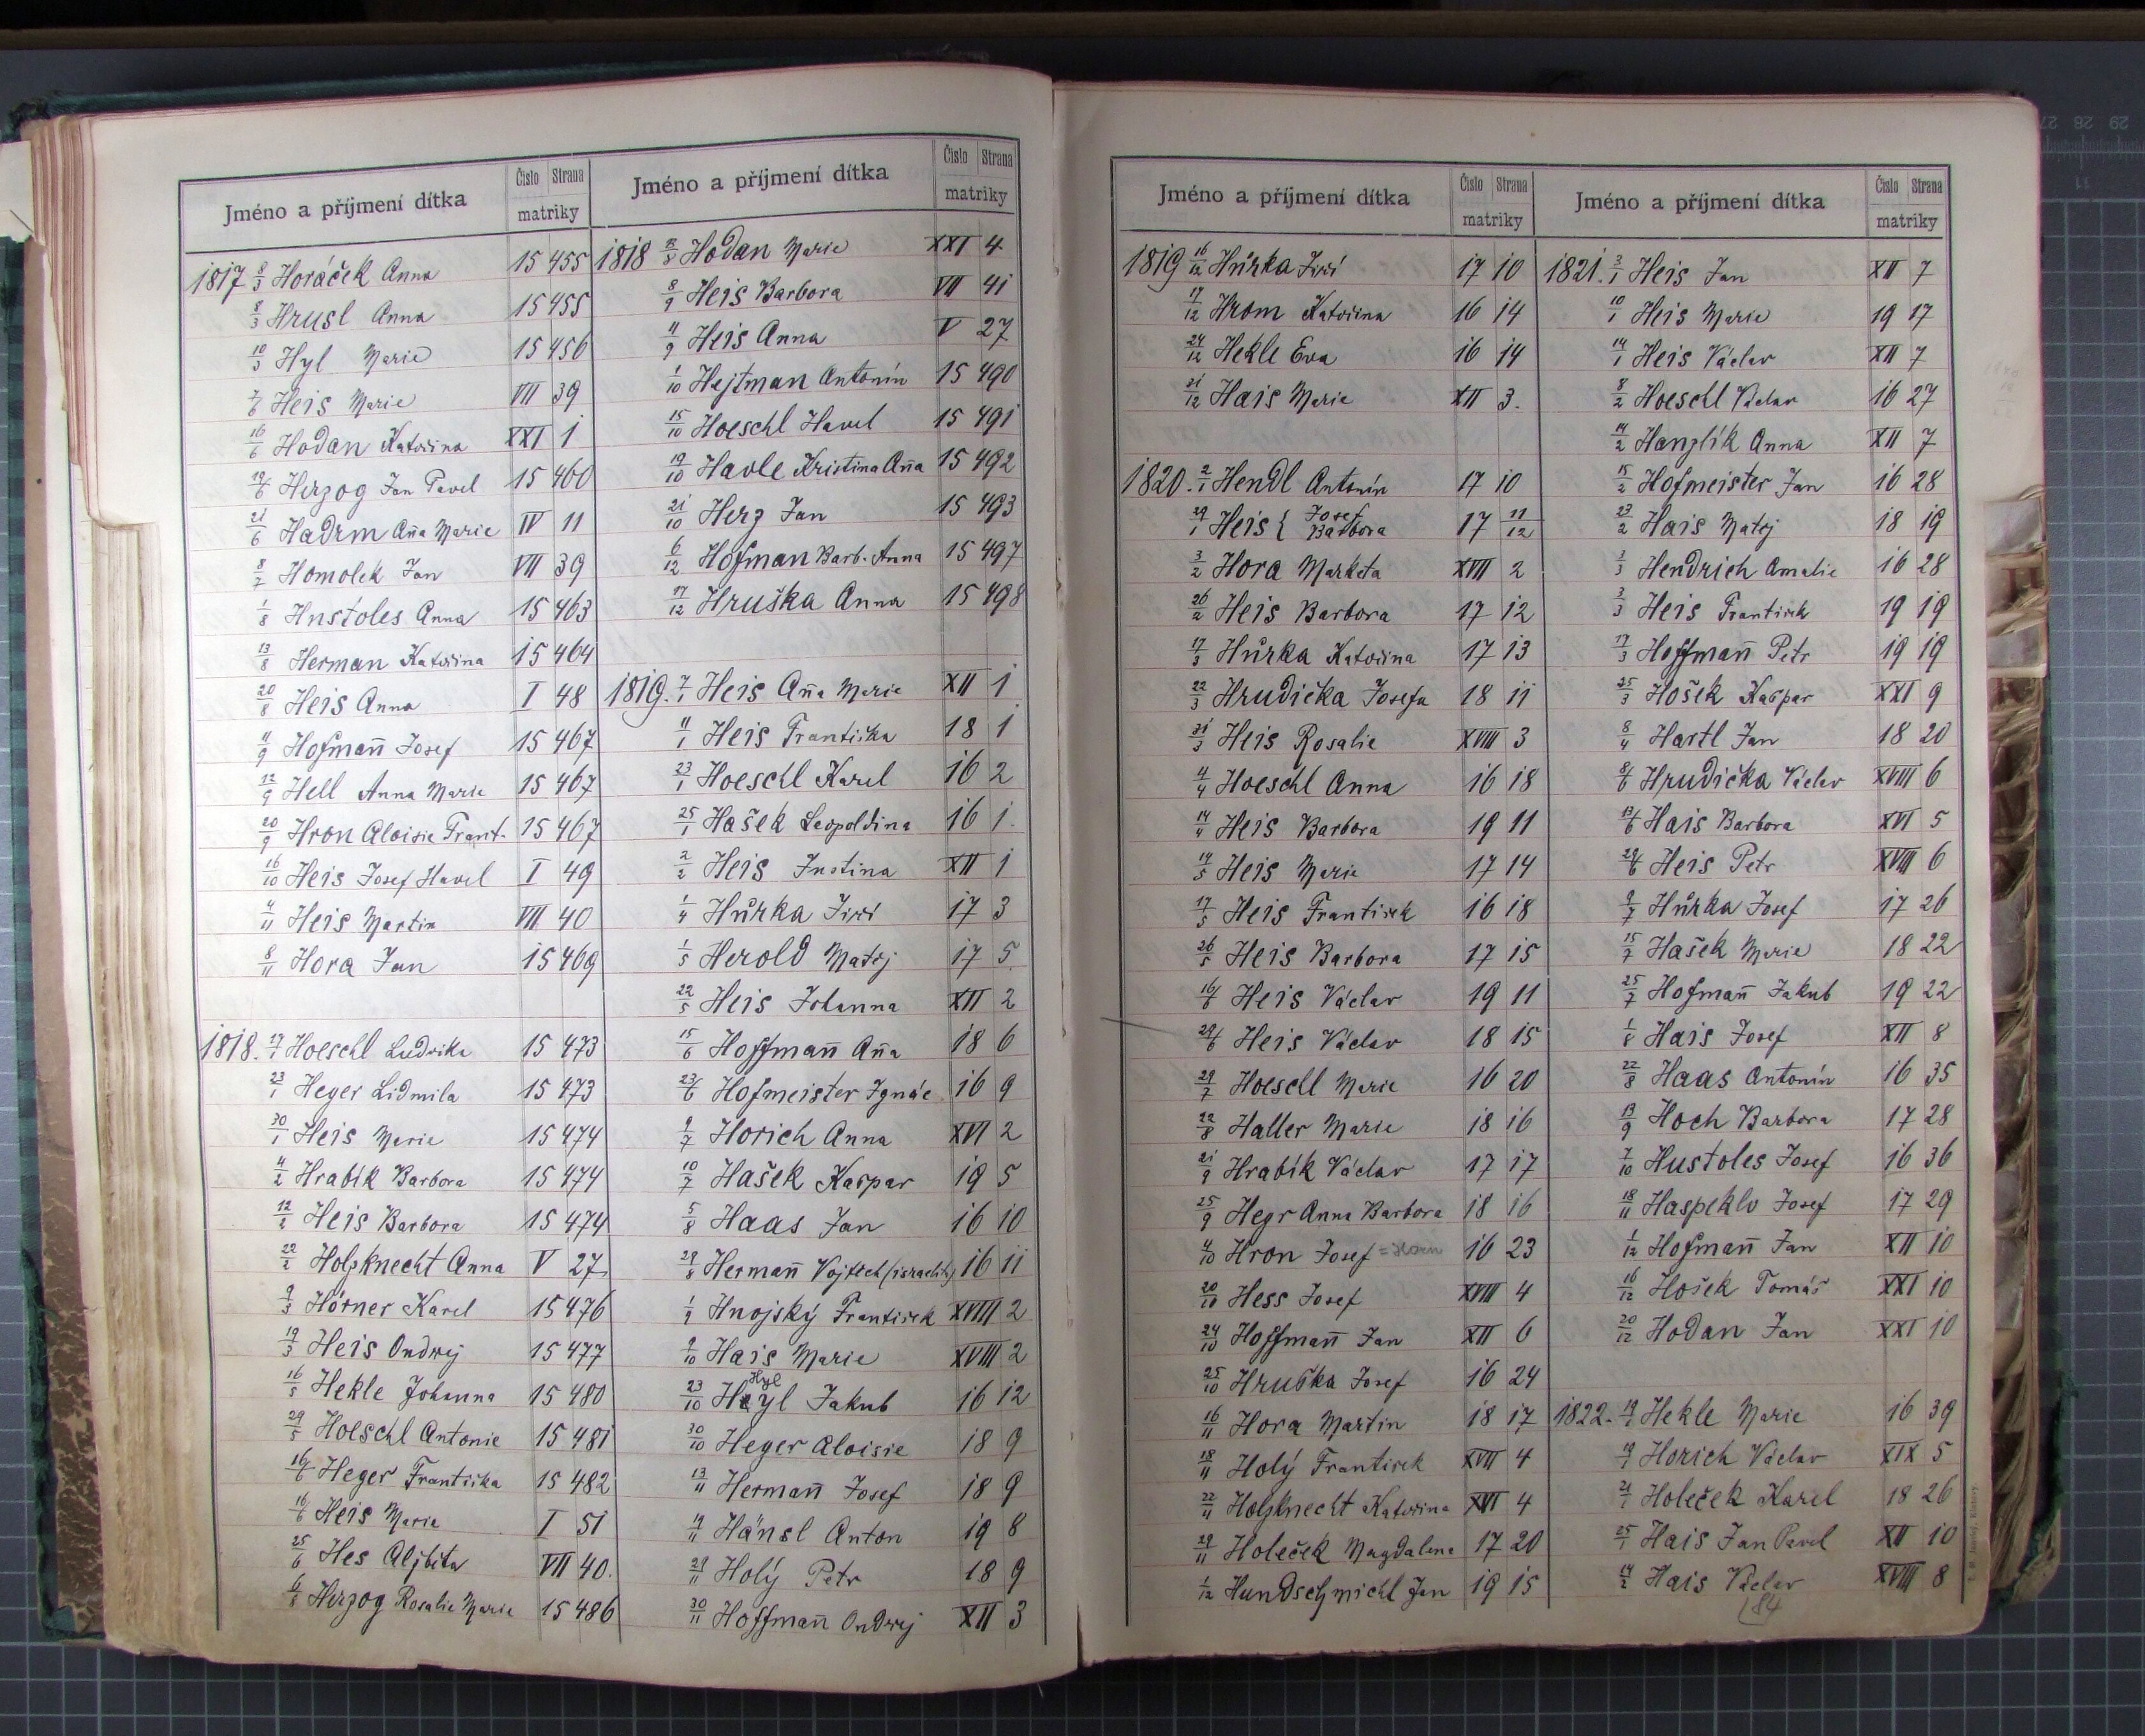 Jméno a příjmení dítka Číslo Strana matriky
1817 8/3 Horáček Anna 15 455
8/3 Hrusl Anna 15 455
10/3 Hyl Marie 15 456
7/6 Heis Marie VII 39
16/6 Hodan Kateřina XXI 1
19/6 Herzog Jan Pavel 15 460
21/6 Hadrm Aña Marie IV 11
8/7 Homolek Jan VII 39
1/8 Hustoles Anna 15 463
13/8 Herman Kateřina 15 464
20/8 Heis Anna I 48
11/9 Hofmañ Josef 15 467
12/9 Hell Anna Marie 15 467
20/9 Hron Aloisie Frant. 15 467
16/10 Heis Josef Havel I 49
4/11 Heis Martin VII 40
8/11 Hora Jan 15 469
1818. 17/1 Hoeschl Ludvika 15 473
23/1 Heger Lidmila 15 473
30/1 Heis Marie 15 474
4/2 Hrabík Barbora 15 474
12/2 Heis Barbora 15 474
22/2 Holzknecht Anna V 27
9/3 Hörner Karel 15 476
19/3 Heis Ondrej 15 477
16/5 Hekle Johanna 15 480
29/5 Hoeschl Antonie 15 481
16/6 Heger Františka 15 482
16/6 Heis Marie I 51
25/6 Hes Alžběta VII 40.
6/8 Herzog Rosalie Marie 15 486
Jméno a příjmení dítka Číslo Strana matriky
1818 Hodan Marie XXI 4
8/9 Heis Barbora VII 41
11/9 Heis Anna V 27
1/10 Hejtman Antonín 15 490
15/10 Hoeschl Havel 15 491
19/10 Havle Kristina Aña 15 492
21/10 Herz Jan 15 493
6/12 Hofman Barb. Anna 15 497
17/12 Hruška Anna 15 498
1819. 7/1 Heis Aña Marie XII 1
11/1 Heis Františka 18 1
23/1 Hoeschl Karel 16 2
25/1 Hašek Leopoldina 16 1.
2/2 Heis Justina XII 1
1/4 Hůrka Jiří 17 3
1/5 Herold Matěj 17 5
22/5 Heis Johanna XII 2
15/6 Hoffmañ Aña 18 6
23/6 Hofmeister Ignác 16 9
9/7 Horich Anna XVI 2
10/7 Hašek Kaspar 19 5
5/8 Haas Jan 16 10
28/8 Hermañ Vojtěch (israelita) 16 11
1/9 Hnojský František XVIII 2
9/10 Hais Marie XVIII 2
Hyl
23/10 Heyl Jakub 16 12
30/10 Heger Aloisie 18 9
13/11 Hermañ Josef 18 9
19/11 Hänsl Anton 19 8
29/11 Holý Petr 18 9
30/11 Hoffmañ Ondrej XII 3
Jméno a příjmení dítka Číslo Strana matriky
1819 16/12 Hůrka Jiří 17 10
17/12 Hrom Kateřina 16 14
24/12 Hekle Eva 16 14
31/12 Hais Marie XII 3.
1820. 2/1 Hendl Antonín 17 10
29/1 Heis { Josef Barbora 17 11/12
3/2 Hora Marketa XVIII 2
26/2 Heis Barbora 17 12
17/3 Hůrka Kateřina 17 13
22/3 Hrudička Josefa 18 11
31/3 Heis Rosalie XVIII 3
4/4 Hoeschl Anna 16 18
14/4 Heis Barbora 19 11
14/5 Heis Marie 17 14
17/5 Heis František 16 18
26/5 Heis Barbora 17 15
16/6 Heis Václav 19 11
29/6 Heis Václav 18 15
29/7 Hoeschl Marie 16 20
22/8 Haller Marie 18 16
21/9 Hrabík Václav 17 17
25/9 Hegr Anna Barbora 18 16
4/10 Hron Josef = Horn 16 23
20/10 Hess Josef XVIII 4
24/10 Hoffmañ Jan XII 6
25/10 Hruška Josef 16 24
16/11 Hora Martin 18 17
18/11 Holý František XVIII 4
22/11 Holzknecht Kateřina XVI 4
29/11 Holeček Magdalena 17 20
1/12 Hundschmichl Jan 19 15
Jméno a příjmení dítka Číslo Strana matriky
1821. 3/1 Heis Jan XII 7
10/1 Heis Marie 19 17
14/1 Heis Václav XII 7
8/2 Hoeschl Václav 16 27
14/2 Hanzlík Anna XII 7
15/2 Hofmeister Jan 16 28
23/2 Hais Matěj 18 19
3/3 Hendrich Amalie 16 28
3/3 Heis František 19 19
17/3 Hoffmañ Petr 19 19
25/3 Hošek Kaspar XXI 9
8/4 Hartl Jan 18 20
8/6 Hrudička Václav XVIII 6
13/6 Hais Barbora XVI 5
29/6 Heis Petr XVIII 6
9/7 Hůrka Josef 17 26
15/7 Hašek Marie 18 22
25/7 Hofmañ Jakub 19 22
1/8 Hais Josef XII 8
22/8 Haas Antonín 16 35
13/9 Hoch Barbora 17 28
7/10 Hustoles Josef 16 36
18/11 Haspeklo Josef 17 29
1/12 Hofmañ Jan XII 10
16/12 Hošek Tomáš XXI 10
20/12 Hodan Jan XXI 10
1822. 19/1 Hekle Marie 16 39
19/1 Horich Václav XIX 5
21/1 Holeček Karel 18 26
25/1 Hais Jan Pavel XII 10
14/2 Hais Václav XVIII 8
84